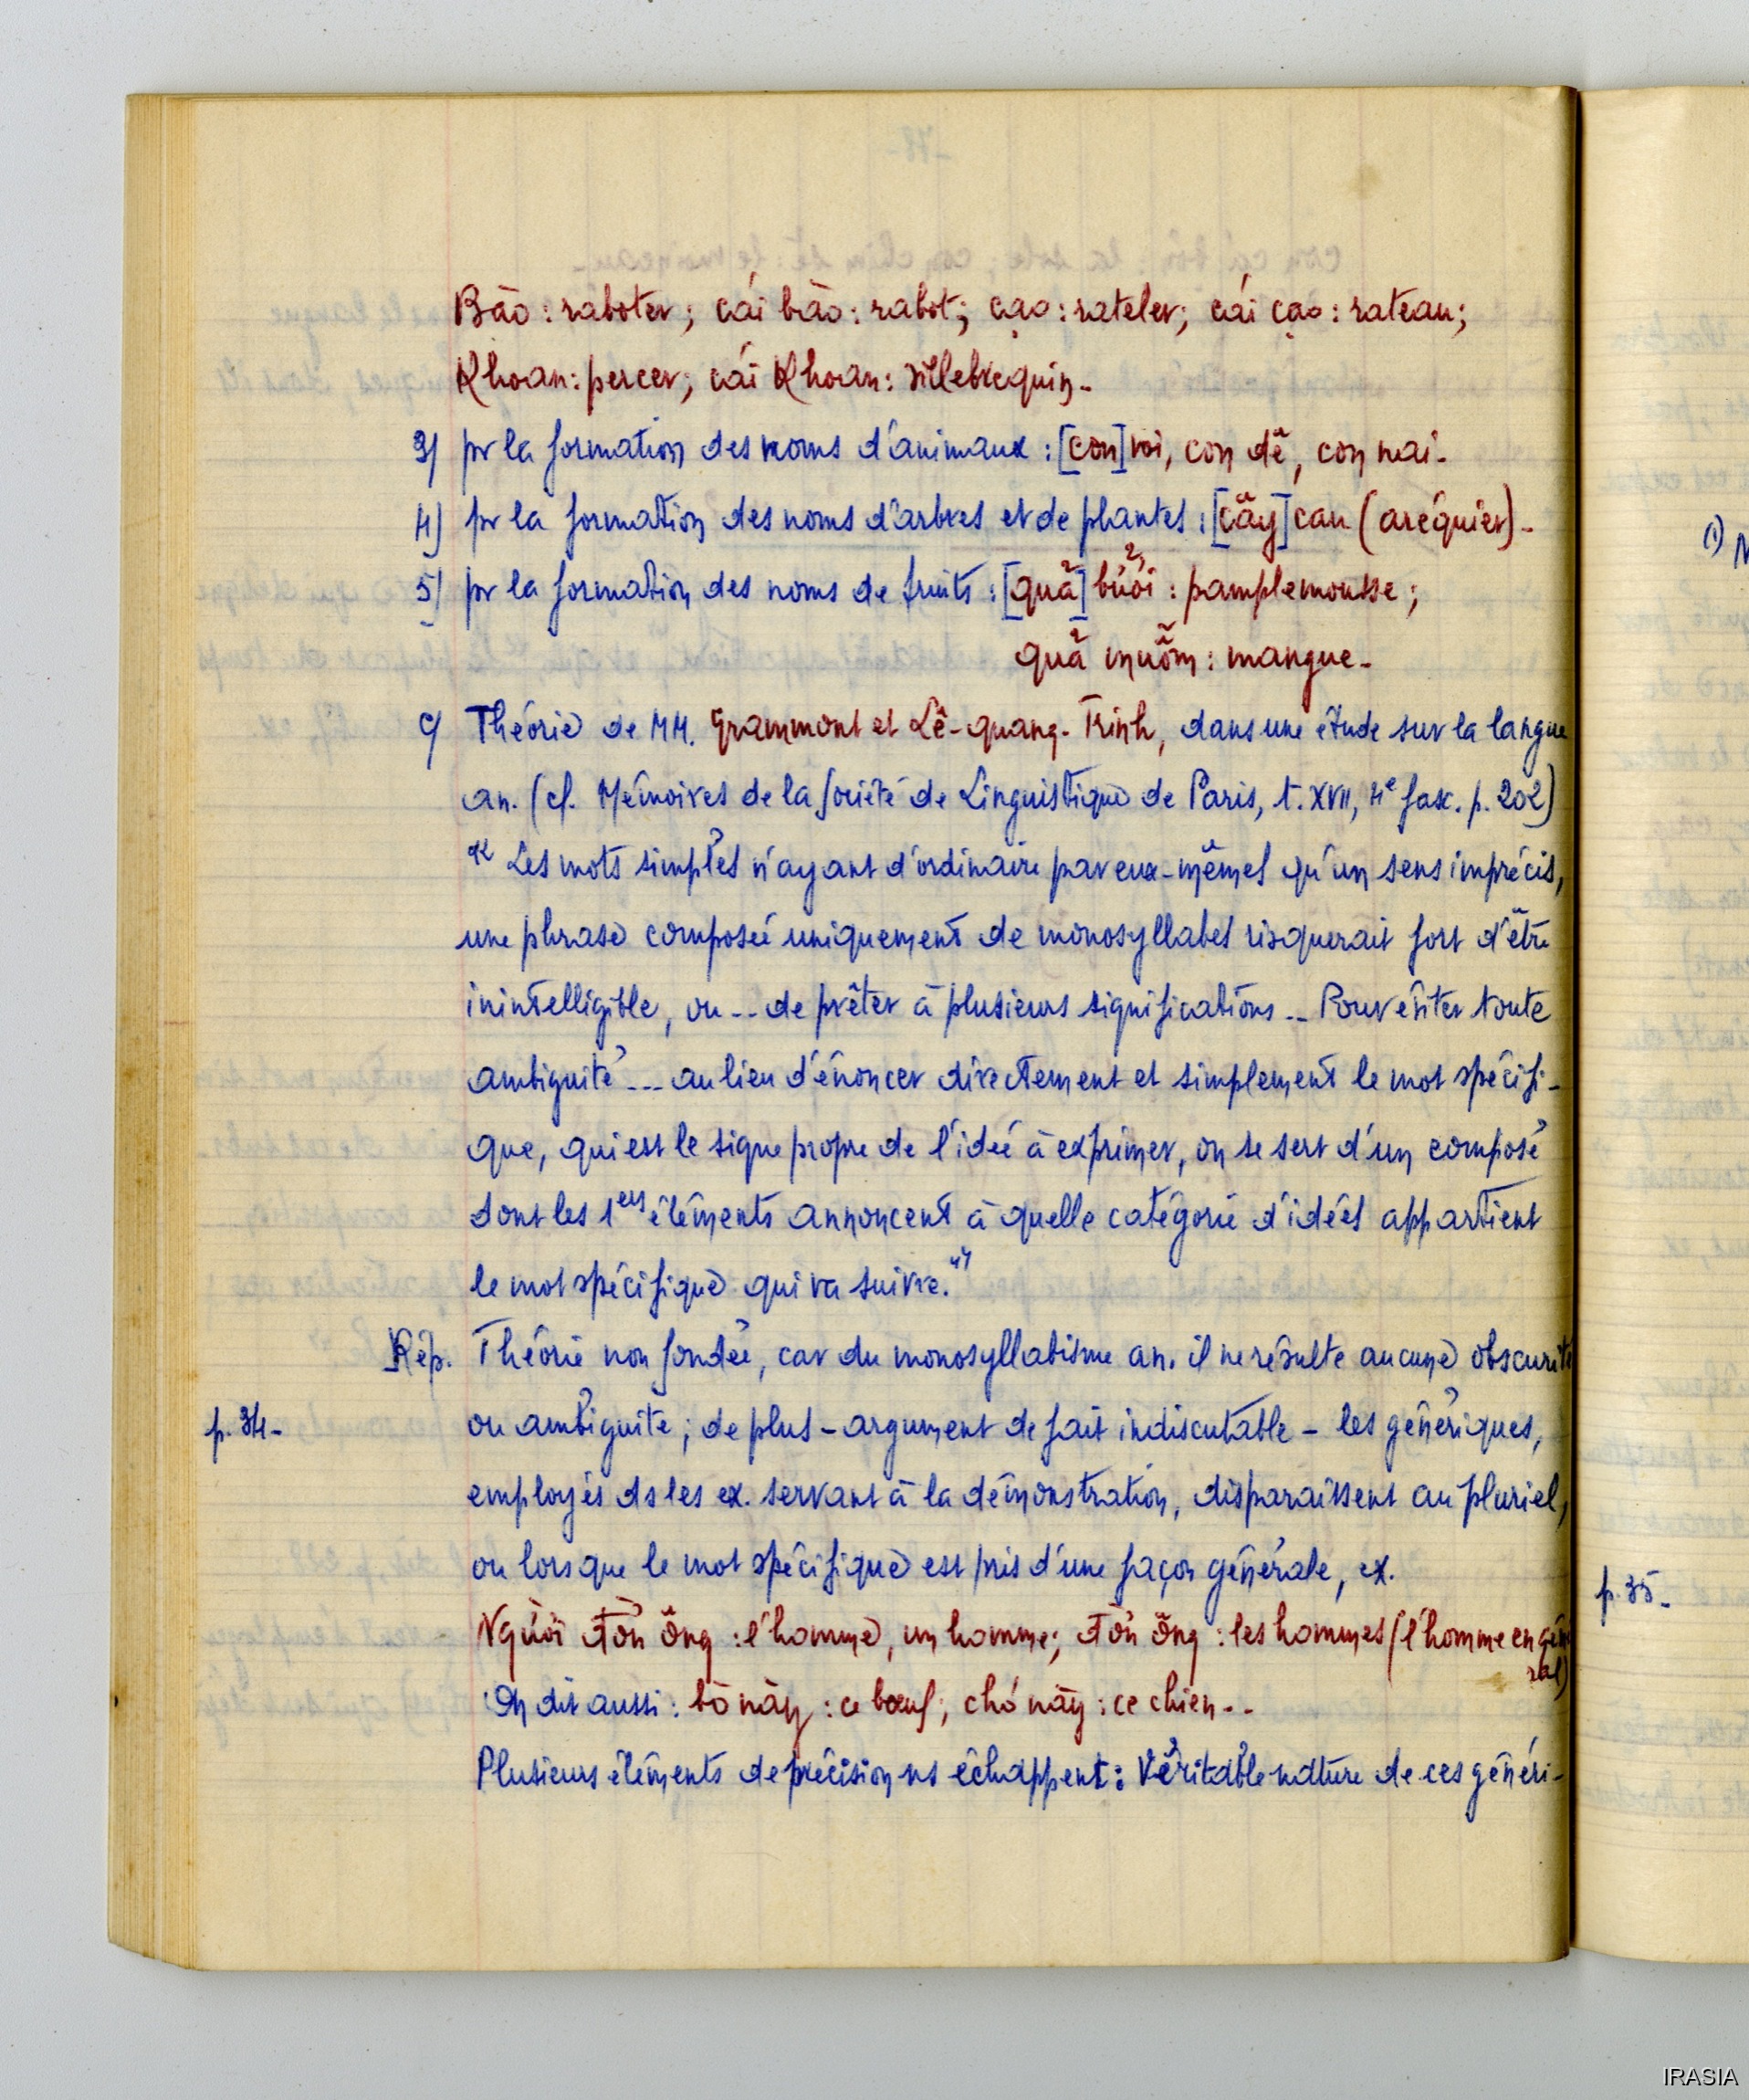 Bào : raboter ; cái bào : rabot ; cạo : rateler ; cái cạo : rateau ;
Khoan : percer ; cái Khoan : villebrequin -
3) pr la formation des noms d'animaux : [con] voi, con dê, con nai -
4) pr la formation des noms d'arbres et de plantes : [cây] cau (aréquier) -
5) pr la formation des noms de fruits : [quả] bưởi : pamplemousse ;
quả muỗm : mangue -
c/ Théorie de MM. Grammont et Lê-quang-Trinh, dans une étude sur la langue
an. (cf. Mémoires de la Société de Linguistique de Paris, t. XVII, 4e fasc. p. 202)
" Les mots simples n'ayant d'ordinaire par eux-mêmes qu'un sens imprécis,
une phrase composée uniquement de monosyllabes risquerait fort d'être
inintelligible, ou -- de prêter à plusieurs significations -- Pour éviter toute
ambiguité --- au lieu d'énoncer directement et simplement le mot spécifi-
que, qui est le signe propre de l'idée à exprimer, on se sert d'un composé
dont les 1ers éléments annoncent à quelle catégorie d'idées appartient
le mot spécifique qui va suivre. "
Rép. Théorie non fondée, car du monosyllabisme an. il ne résulte aucune obscurité
p. 34 - ou ambiguité ; de plus - argument de fait indiscutable - les génériques,
employés ds les ex. servant à la démonstration, disparaissent au pluriel,
ou lorsque le mot spécifique est pris d'une façon générale, ex.
Người đờn ông : l'homme, un homme ; đờn ông : les hommes (l'homme en géné
ral)
On dit aussi : bò nầy : ce bœuf ; chó nầy : ce chien - -
Plusieurs éléments de précision ns échappent : Véritable nature de ces généri-
(1) N
p. 35 -
IRASIA